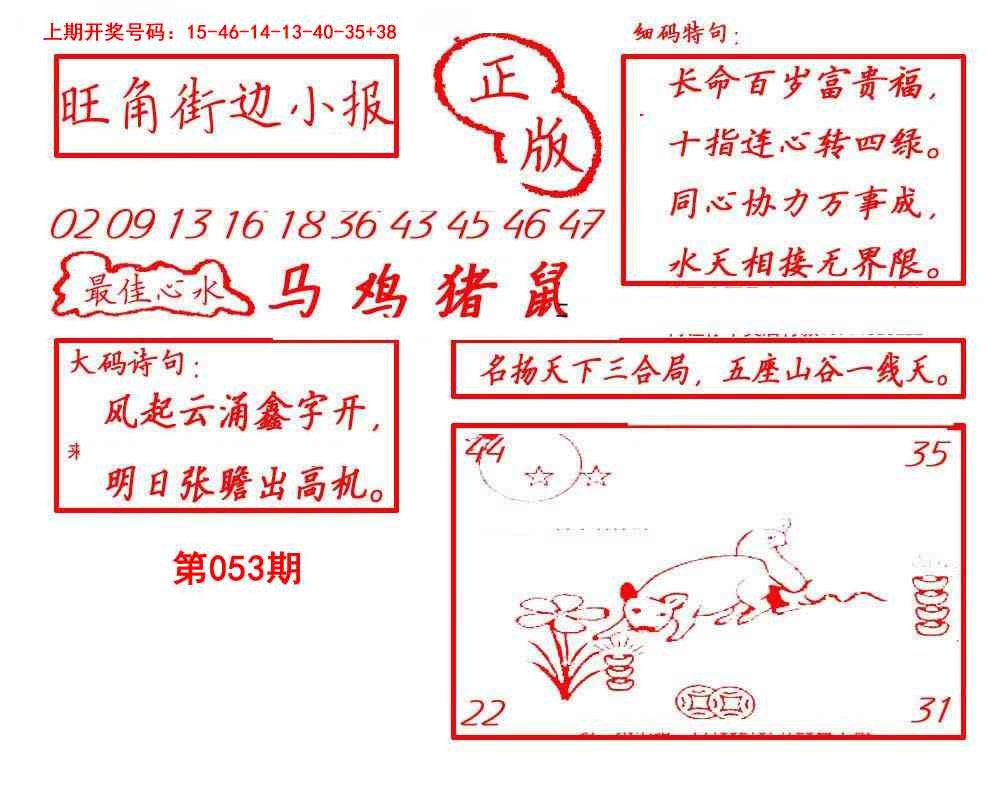 上期开奖号码：15-46-14-13-40-35+38
旺角街边小报
正版
细码特句：
长命百岁富贵福，
十指连心转四绿。
同心协力万事成，
水天相接无界限。
02 09 13 16 18 36 43 45 46 47
最佳心水
马 鸡 猪 鼠
大码诗句：
风起云涌鑫字开，
明日张瞻出高机。
来
名扬天下三合局，五座山谷一线天。
第053期
44
35
22
31